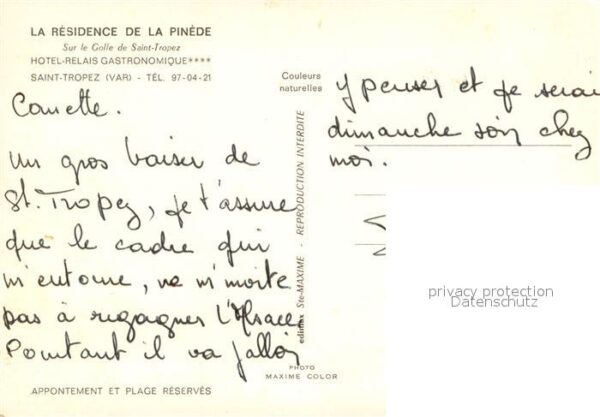 LA RÉSIDENCE DE LA PINÈDE
Sur le Golfe de Saint-Tropez
HOTEL-RELAIS GASTRONOMIQUE****
SAINT-TROPEZ (VAR) - TÉL. 97-04-21
Couleurs
naturelles
Un gros baiser de
St. Tropez, je t'assure
que le cadre qui
m'entoure, ne m'incite
pas à regagner l'Alsace
Pourtant il va falloir
y penser et je serai
dimanche soir chez
moi.
edimax Ste-MAXIME - REPRODUCTION INTERDITE
PHOTO
MAXIME COLOR
APPONTEMENT ET PLAGE RÉSERVÉS
privacy protection
Datenschutz